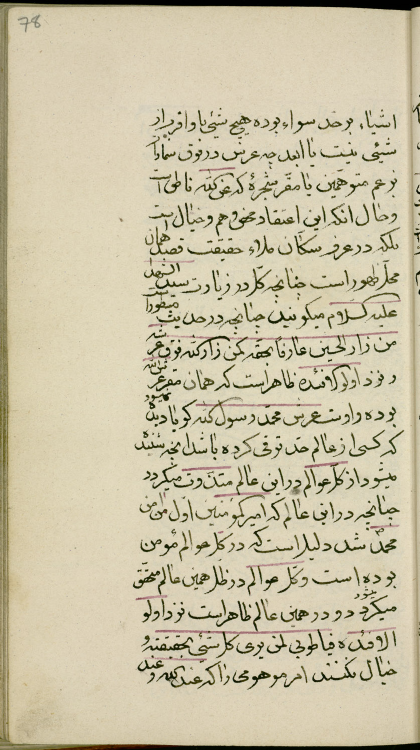 78
اشیاء بر حد سواء بوده هیچ شیئی باو اقرب از
شیئی نیست یا ابعد چه عرش در فوق سموات
بزعم متوهمین یا مقر شجرهٔ که غنی کنه ناطق است
و حال آنکه این اعتقاد محض وهم و خیال است
بلکه در عرف سکان ملاء حقیقت قصد همان
محل ظهور است چنانچه کل در زیارت سید الشهداء
علیه السلام میگویند چنانچه در حدیث مسطور است
من زار الحسین عارفا بحقه کمن زار الله فوق عرشه
و نزد اولو الافئده ظاهر است که همان مقر عرش الله
بوده و اوست عرش محمد رسول الله که گویا دیده میشود
که کسی از عالم حد ترقی کرده باشد آنچه شنیده
میشود از کل عوالم در این عالم متذوت میگردد
چنانچه در این عالم که امیر المومنین اول من امن
بمحمد ص شد دلیل است که در کل عوالم مؤمن
بوده است و کل عوالم در ظل همین عالم محقق
میگردد و در همین عالم ظاهر است نزد اولو
الافئده فیا طوبی لمن یری کل شیئی بحقیقته و
خیال نکنند امر موهومی را که عند الله و عند